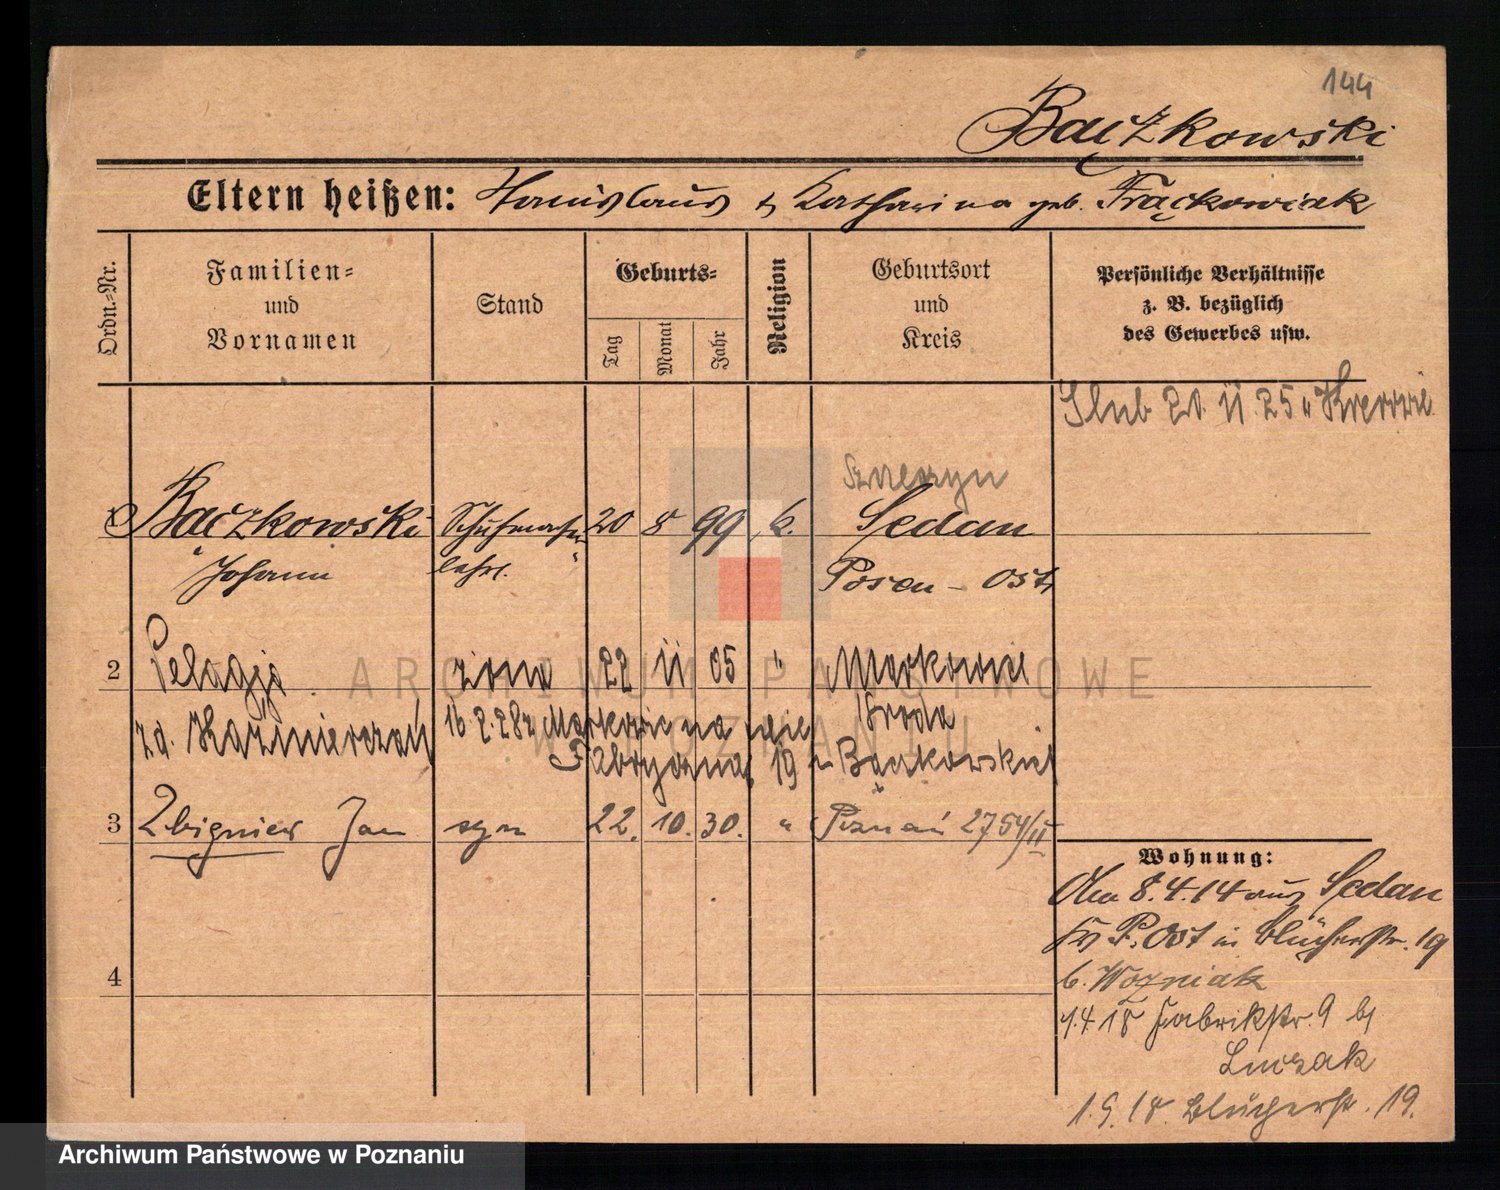 144
Bączkowski
Eltern heißen: Stanislaus & Katharina geb. Frąckowiak
Ordn.-Nr.
Familien-
und
Vornamen
Stand
Geburts-
Tag
Monat
Jahr
Religion
Geburtsort
und
Kreis
Persönliche Verhältnisse
z. B. bezüglich
des Gewerbes usw.
Slub 20. 11. 25
1 Bączkowski Schuhmacher 20 8 99 k. Sedan
Johann lehrl. Posen - Ost
2 Pelagja żona 22 11 05 " Markowice
zd. Kaźmierczak Środa
16. 2. 28 z Markowic na
Fabryczna 19 Bączkowskich
3 Zbigniew Jan syn 22. 10. 30. " Poznań 2754/II
4
Wohnung:
8.4.14 aus Sedan
P. Ost in Blücherstr. 19
b. Wozniak
1.4 18 Fabrikstr. 9 b/
Luczak
1.9.18 Blücherstr. 19.
ARCHIWUM PAŃSTWOWE
W POZNANIU
Archiwum Państwowe w Poznaniu